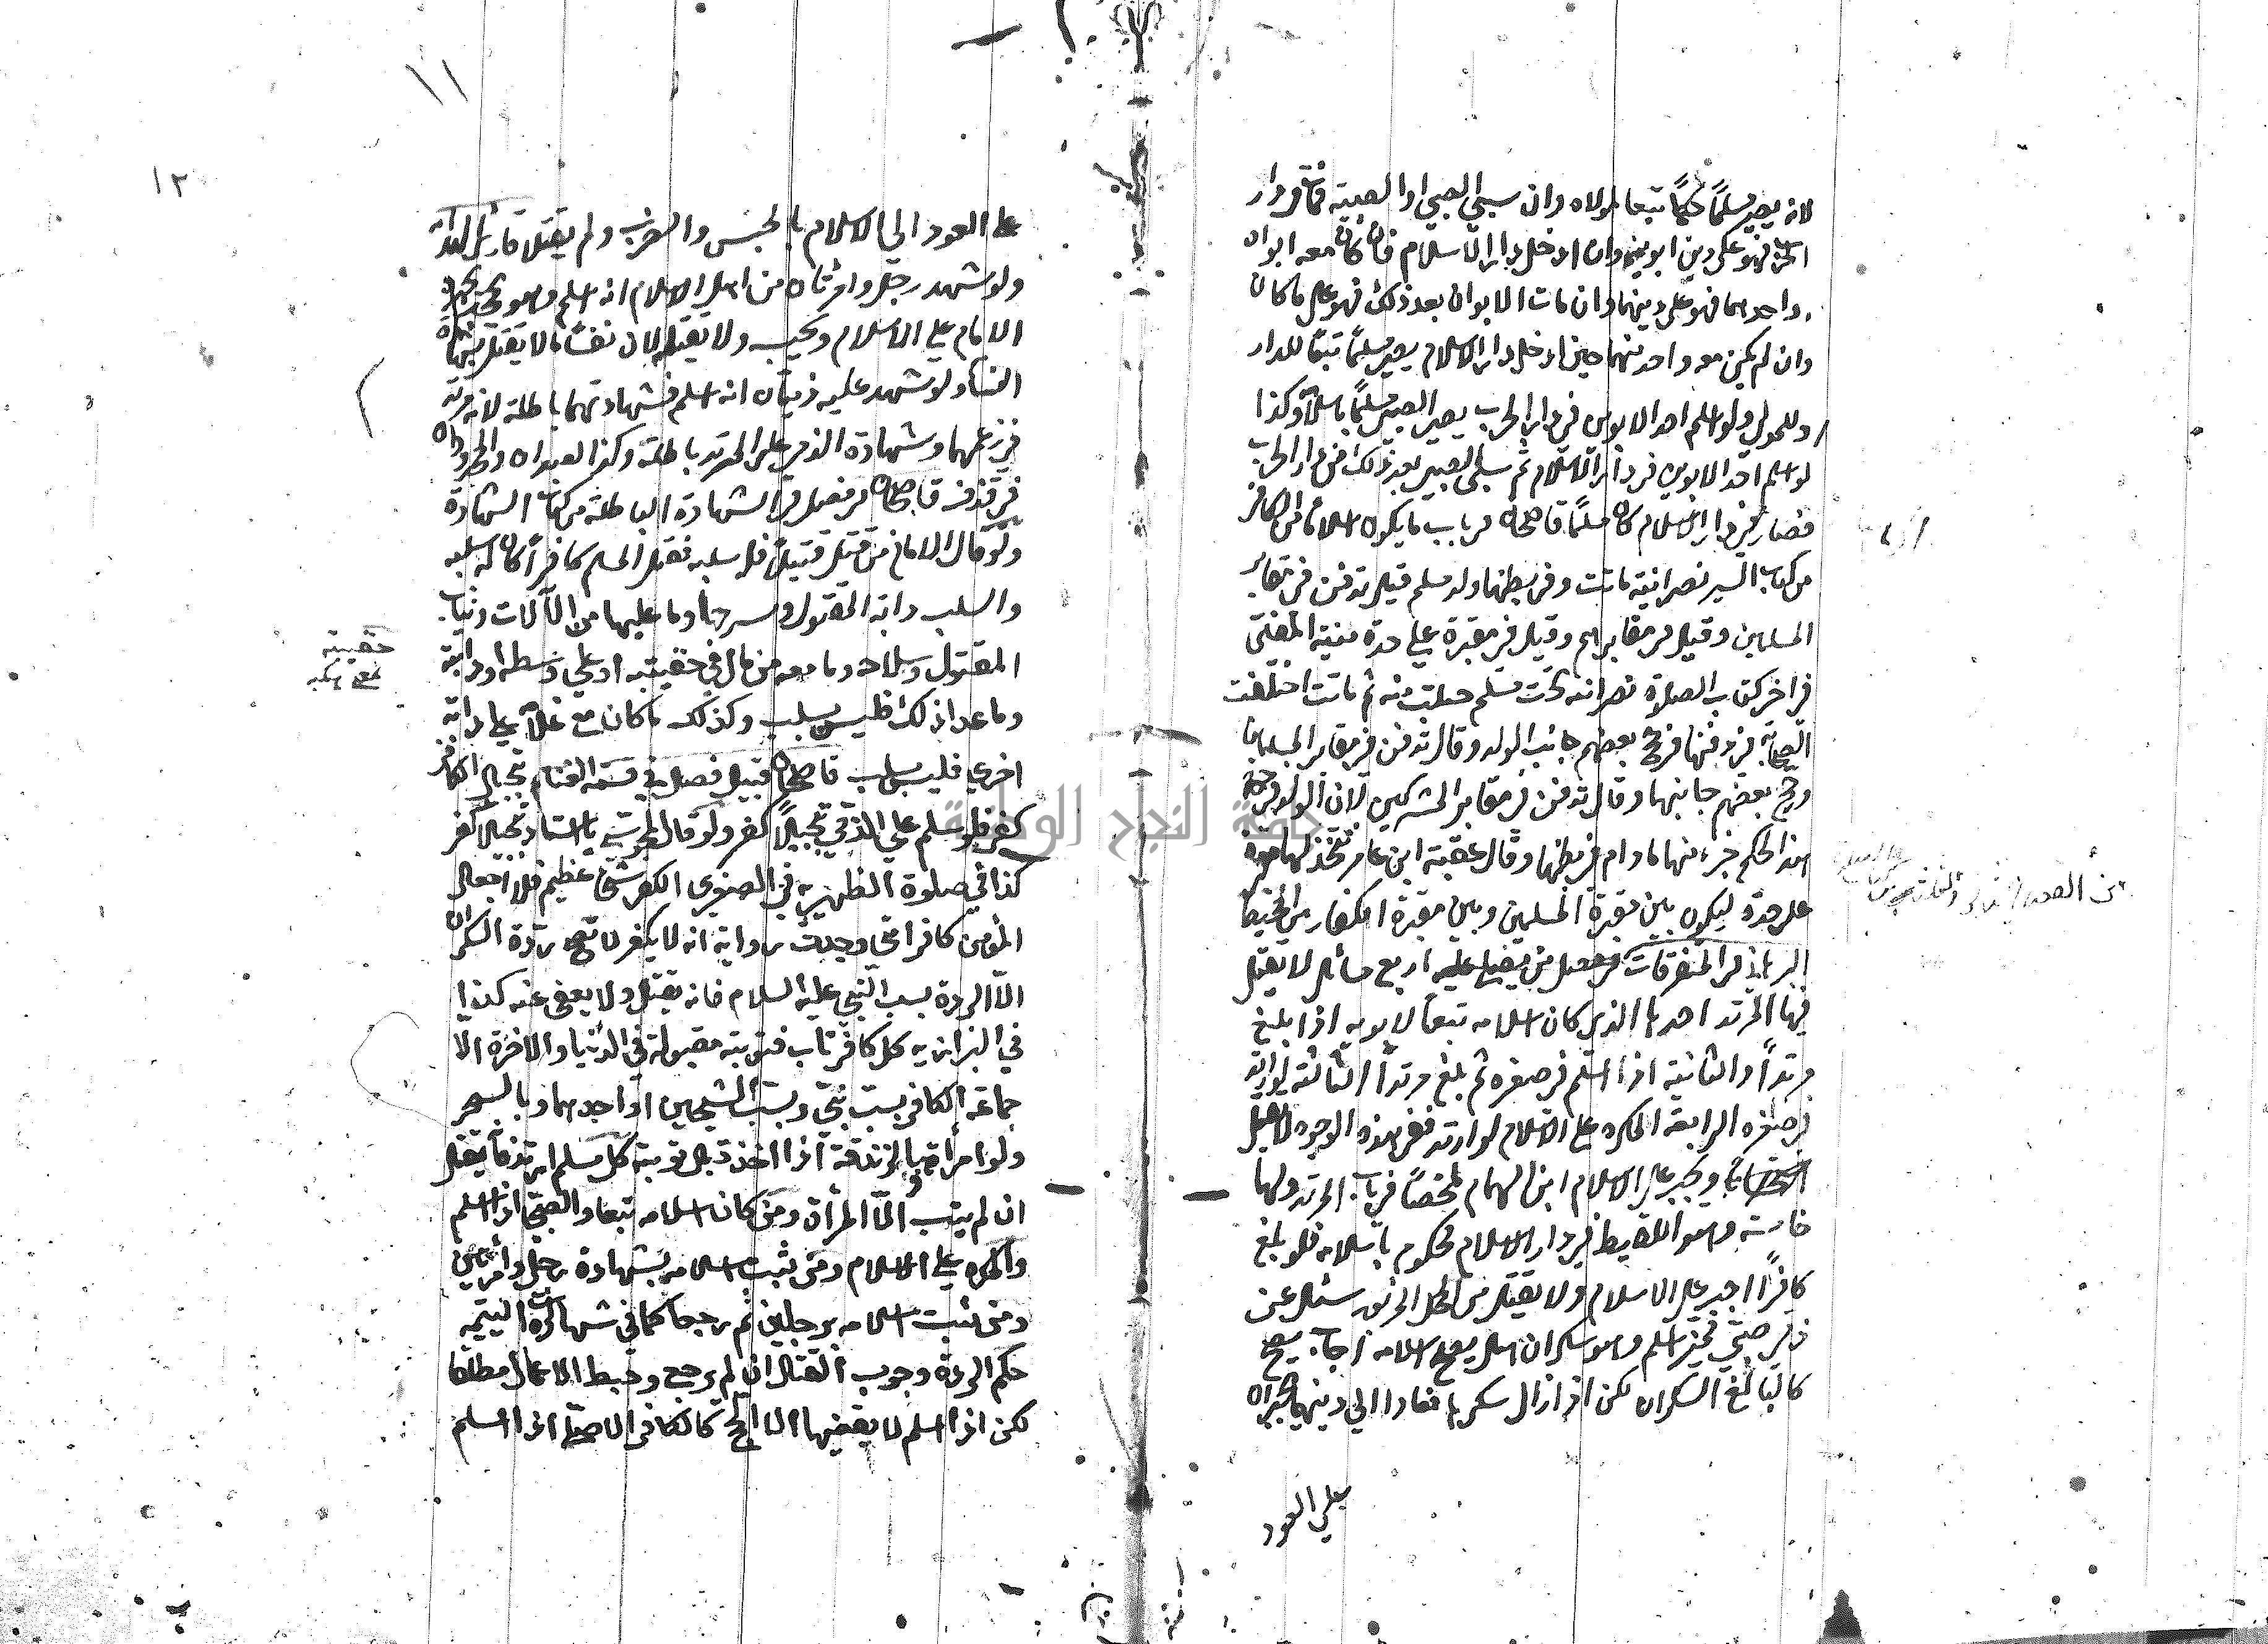 لانه يصير مسلمًا حكمًا تبعا لمولاه وان سبي الصبي او الصبية فمات في دار
الحرب فهو على دين ابويه وان ادخل دار الاسلام فان كان معه ابواه
او احدهما فهو على دينهما وان مات الابوان بعد ذلك فهو على ما كان
وان لم يكن معه واحد منهما حين ادخل دار الاسلام يصير مسلمًا تبعًا للدار
وللمولى ولو اسلم احد الابوين في دار الحرب يصير الصبي مسلمًا باسلامه وكذا
لو اسلم احد الابوين في دار الاسلام ثم سبي الصبي بعد ذلك من دار الحرب
فصار في دار الاسلام كان مسلمًا قاضيخان في باب ما يكون اسلاما من الكافر
من كتاب السير نصرانية ماتت وفي بطنها ولد مسلم قيل تدفن في مقابر
المسلمين وقيل في مقابرهم وقيل في مقبرة على حدة منية المفتي
في اخر كتاب الصلاة نصرانية تحت مسلم حبلت منه ثم ماتت اختلفت
الصحابة في دفنها فرجح بعضهم جانب الولد وقال تدفن في مقابر المسلمين
ورجح بعضهم جانبها وقال تدفن في مقابر المشركين لان الولد في
هذا الحكم جزء منها ما دام في بطنها وقال عقبة ابن عامر تتخذ لها مقبرة
على حدة ليكون بين مقبرة المسلمين وبين مقبرة الكفار من المحيط
البرهاني في المتفرقات في فصل من يصلى عليه اربع مسائل لا يقتل
فيها المرتد احدها الذي كان اسلامه تبعا لابويه اذا بلغ
مرتدًا والثانية اذا اسلم في صغره ثم بلغ مرتدًا الثالثة لو ارتد
في صغره الرابعة المكره على الاسلام لو ارتد ففي هذه الوجوه لا يقتل
استحسانًا ويجبر على الاسلام ابن الهمام ملخصًا في باب المرتد ولها
خامسة وهو اللقيط في دار الاسلام محكوم باسلامه فلو بلغ
كافرًا اجبر على الاسلام ولا يقتل من المحل المزبور سئل عن
ذمي صبي مميز اسلم وهو سكران هل يصح اسلامه اجاب يصح
كالبالغ السكران لكن اذا زال سكرهما فعادا الى دينهما يجبران
على العود
١١
١٢
على العود الى الاسلام بالحبس والضرب ولم يقتلا قارئ الهداية
ولو شهد رجل وامرأتان من اهل الاسلام انه اسلم وهو يجحد يجبره
الامام على الاسلام ويحبسه ولا يقتله لان نفسًا ما لا يقتل بشهادة
النساء ولو شهد عليه ذميان انه اسلم فشهادتهما باطلة لانه مرتد
في زعمهما وشهادة الذمي على المرتد باطلة وكذا العبدان والمحدودان
في قذف قاضيخان في فصل في الشهادة الباطلة من كتاب الشهادة
ولو قال الامام من قتل قتيلًا فله سلبه فقتل المسلم كافرًا كان له سلبه
والسلب دابة المقتول وسرجها وما عليها من الآلات وثياب
المقتول وسلاحه وما معه من مال في حقيبته او على وسطه او دابته
وما عدا ذلك فليس بسلب وكذلك ما كان مع غلامه على دابة
اخرى فليس بسلب قاضيخان قبيل فصل في قسمة الغنائم تبجيل الكافر
كفر فلو سلم على الذمي تبجيلًا كفر ولو قال لمجوسي يا استاد تبجيلًا كفر
كذا في صلوة الظهيرية في الصغرى الكفر شئ عظيم فلا اجعل
المؤمن كافرا متى وجدت رواية انه لا يكفر لا تصح ردة السكران
الا الردة بسب النبي عليه السلام فانه يقتل ولا يعفى عنه كذا
في البزازيه كل كافر تاب فتوبته مقبولة في الدنيا والاخرة الا
جماعة الكافر بسب نبي وبسب الشيخين او احدهما وبالسحر
ولو امرأة وبالزندقة اذا اخذ قبل توبته كل مسلم ارتد فانه يقتل
ان لم يتب الا المرأة ومن كان اسلامه تبعا والصبي اذا اسلم
والمكره على الاسلام ومن ثبت اسلامه بشهادة رجل وامرأتين
ومن ثبت اسلامه برجلين ثم رجعا كما في شهادات اليتيمه
حكم الردة وجوب القتل ان لم يرجع وحبط الاعمال مطلقا
لكن اذا اسلم لا يقضيها الا الحج كالكافر الاصلي اذا اسلم
حقيبته